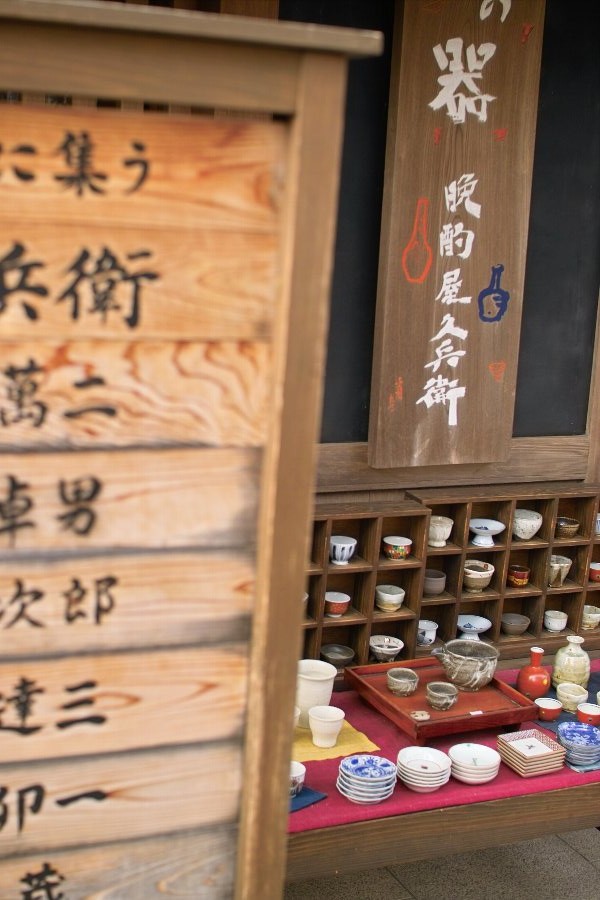 に集う
兵衛
萬二
卓男
次郎
達三
卯一
蔵
の器
晩酌屋久兵衛